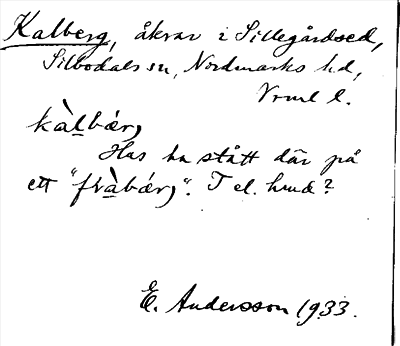 Kalberg, åkrar i Sillegårdsed,
Silbodals sn, Nordmarks hd,
Vrml l.
kàlbǽrj
Has ha stått där på
ett "fràbǽrj". T el. hmd?
E. Andersson 1933.